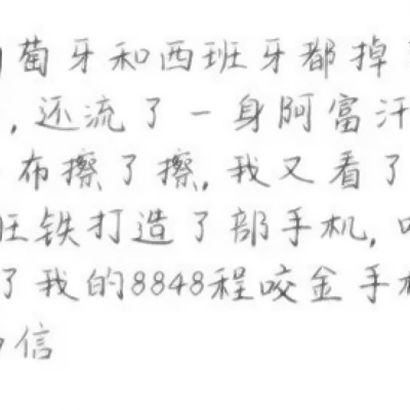 萄牙和西班牙都掉
,还流了一身阿富汗
布擦了擦,我又看了
旺铁打造了部手机,
了我的8848程咬金手机
信